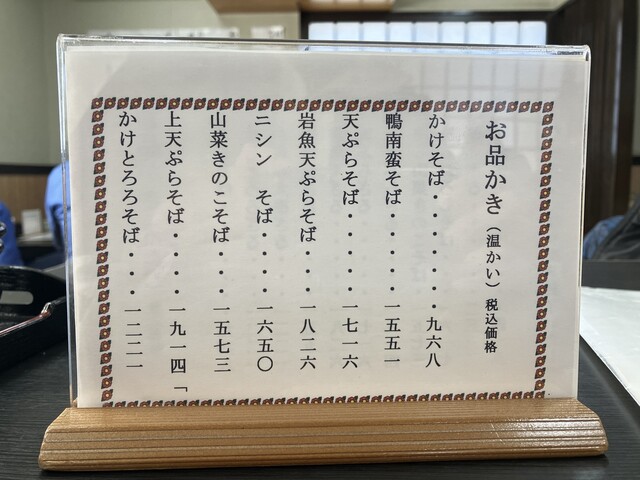 お品かき（温かい）税込価格
かけそば・・・・・・・九六八
鴨南蛮そば・・・・・一五五一
天ぷらそば・・・・・一七一六
岩魚天ぷらそば・・・一八二六
ニシン　そば・・・・一六五〇
山菜きのこそば・・・一五七三
上天ぷらそば・・・・一九一四「
かけとろろそば・・・一二二一